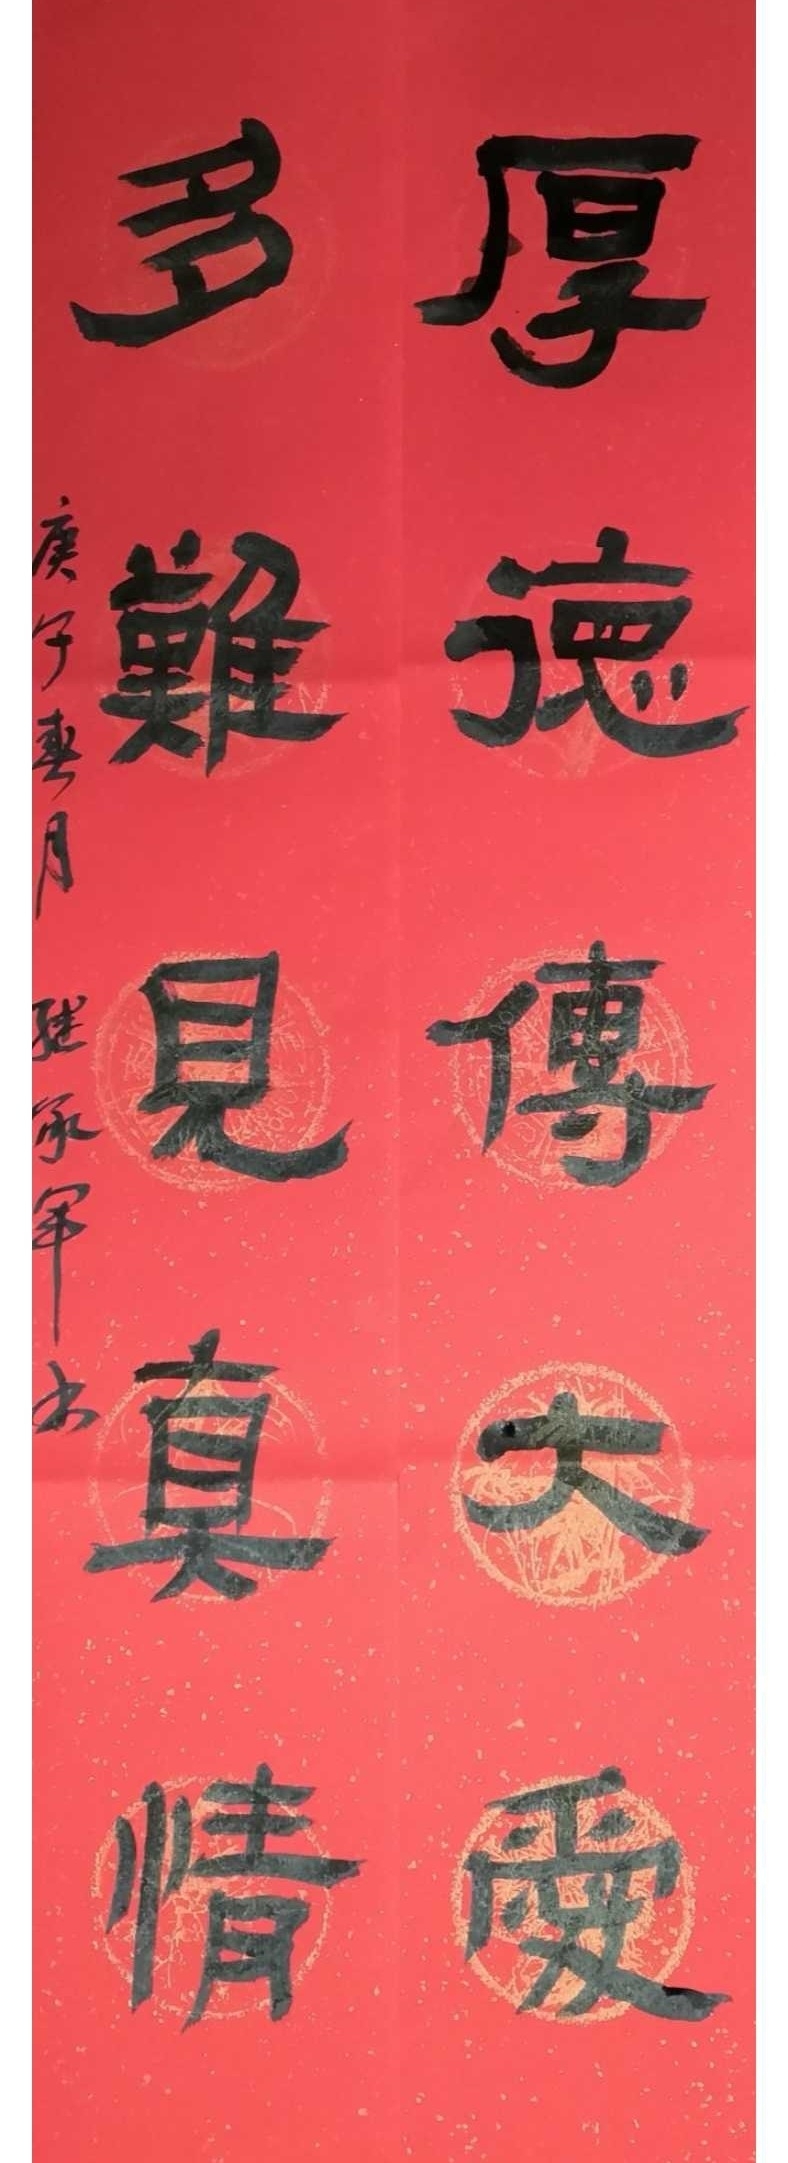 厚德傳大愛
多難見真情
庚子春月 继承军书